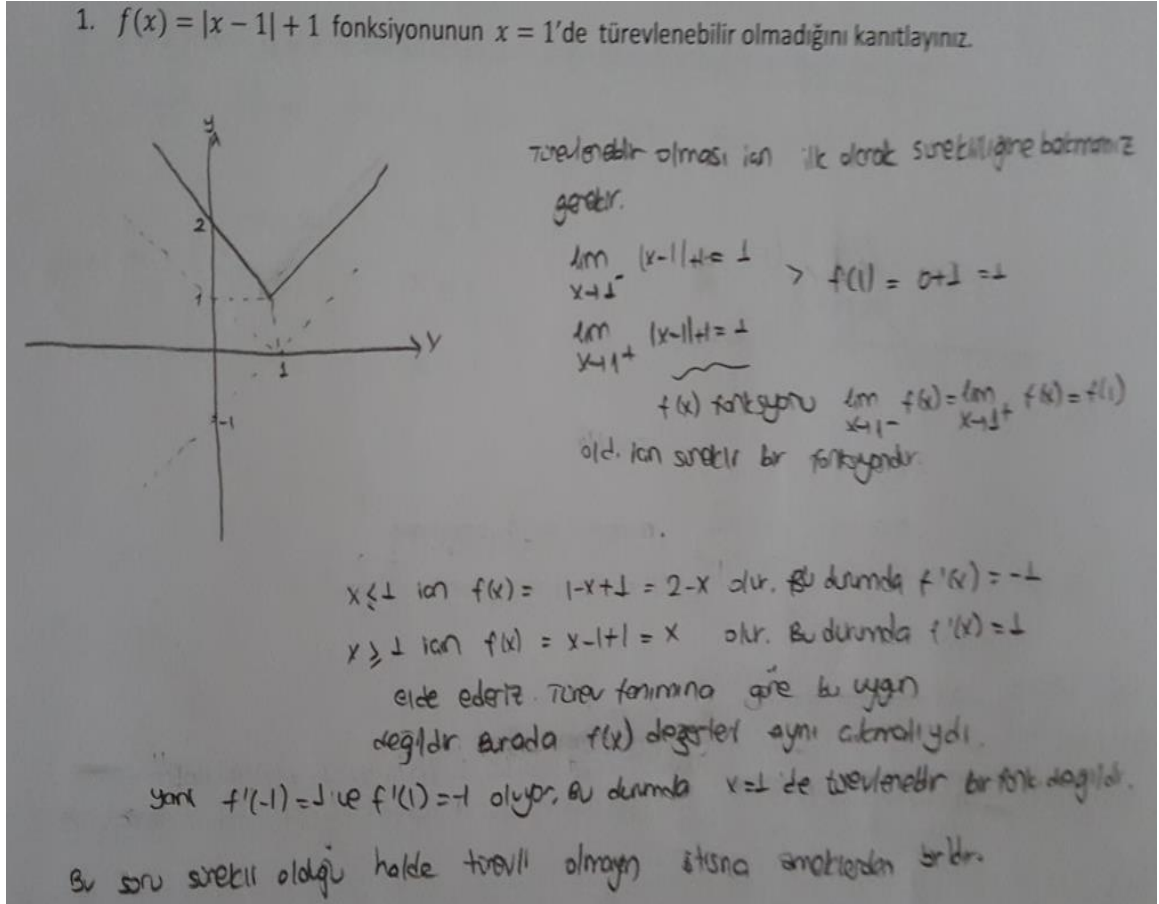 1. f(x) = |x − 1| + 1 fonksiyonunun x = 1'de türevlenebilir olmadığını kanıtlayınız.
y
2
1
1
-1
y
Türevlenebilir olması için ilk olarak sürekliliğine bakmamız
gerekir.
lim x→1⁻ |x-1|+1 = 1
> f(1) = 0+1 = 1
lim x→1⁺ |x-1|+1 = 1
f(x) fonksiyonu lim x→1⁻ f(x) = lim x→1⁺ f(x) = f(1)
old. için sürekli bir fonksiyondur.
x ≤ 1 için f(x) = 1-x+1 = 2-x olur. Bu durumda f'(x) = -1
x ≥ 1 için f(x) = x-1+1 = x olur. Bu durumda f'(x) = 1
elde ederiz. Türev tanımına göre bu uygun
değildir. Burada f(x) değerleri aynı çıkmalıydı.
yani f'(-1) = 1 ve f'(1) = -1 oluyor, Bu durumda x=1'de türevlenebilir bir fonk değildir.
Bu soru sürekli olduğu halde türevli olmayan istisna örneklerden biridir.